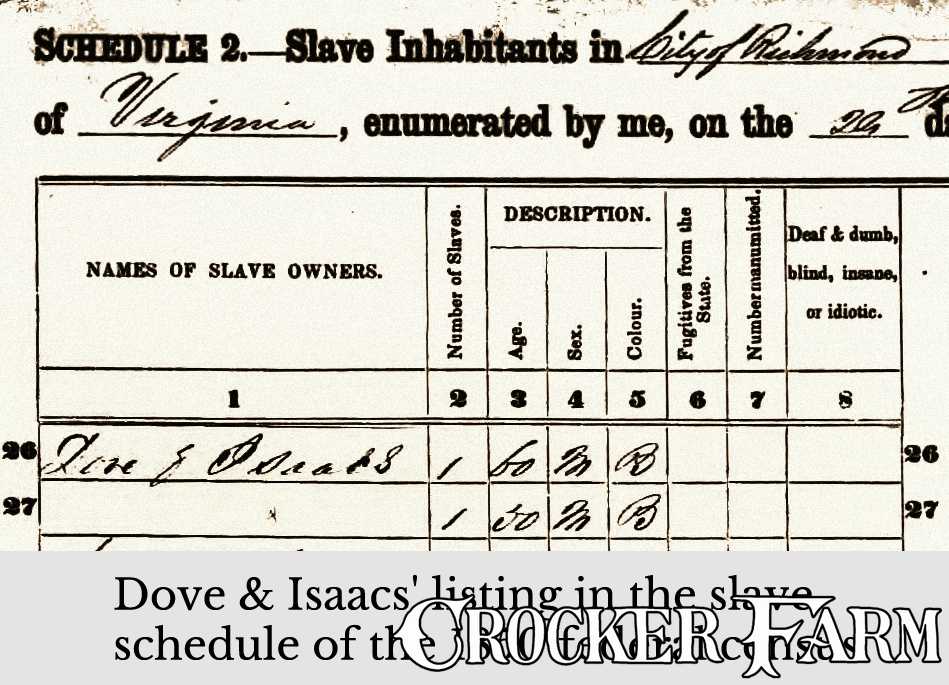 SCHEDULE 2.—Slave Inhabitants in City of Richmond
of Virginia, enumerated by me, on the
NAMES OF SLAVE OWNERS. Number of Slaves. DESCRIPTION. Fugitives from the State. Number manumitted. Deaf & dumb, blind, insane, or idiotic.
Age. Sex. Colour.
1 2 3 4 5 6 7 8
26 Dove & Isaacs 1 60 M B 26
27 1 50 M B 27
Dove & Isaacs' listing in the slave
schedule of the federal census
CROCKER FARM